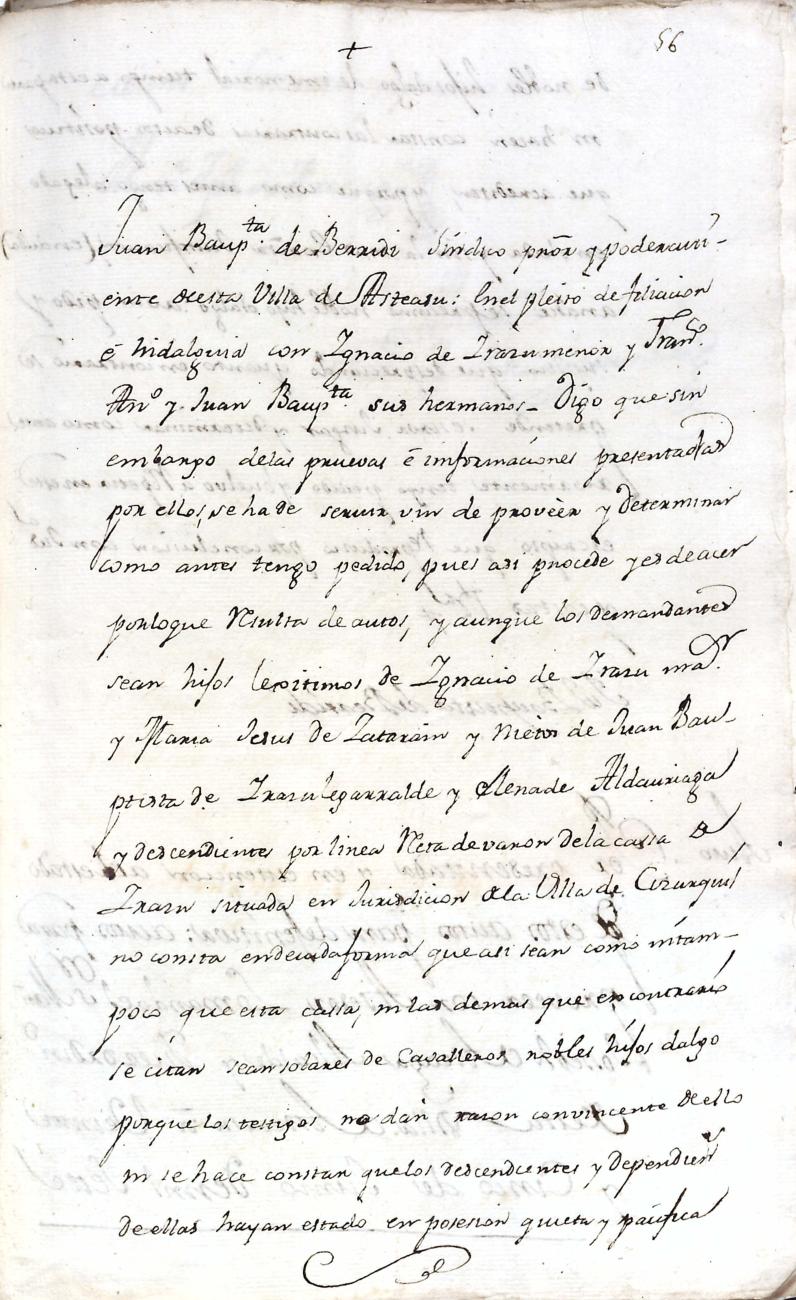 +
56
Juan Baup.ta de Berridi Síndico prōr y poderavi-
ente desta Villa de Asteasu: En el pleito de filiacion
é hidalguia con Ignacio de Irazu menor y Fran.co
An.o y Juan Baup.ta sus hermanos_ Digo que sin
embargo delas pruevas é imformaciones presentadas
por ellos, se ha de servir vm de provéer y determinar
como antes tengo pedido, pues asi procede y es de acer
por loque Resulta de autos, y aunque los demandantes
sean hijos lexitimos de Ignacio de Irazu ma.r
y Maria Jesus de Zatarain y Nietos de Juan Bau-
ptista de Irazulegarralde y Elena de Aldauriaga
y descendientes por linea Recta de varon dela cassa de
Irazu situada en Jurisdicion de la Villa de Cizurquil
no consta en devida forma que asi sean como nitam-
poco que esta cassa, ni las demas que en contrario
se citan sean solares de Cavalleros nobles hijos dalgo
porque los testigos no dán razon convincente de ello
ni se hace constar que los descendientes y dependien.s
de ellas hayan estado en posesion quieta y pacifica